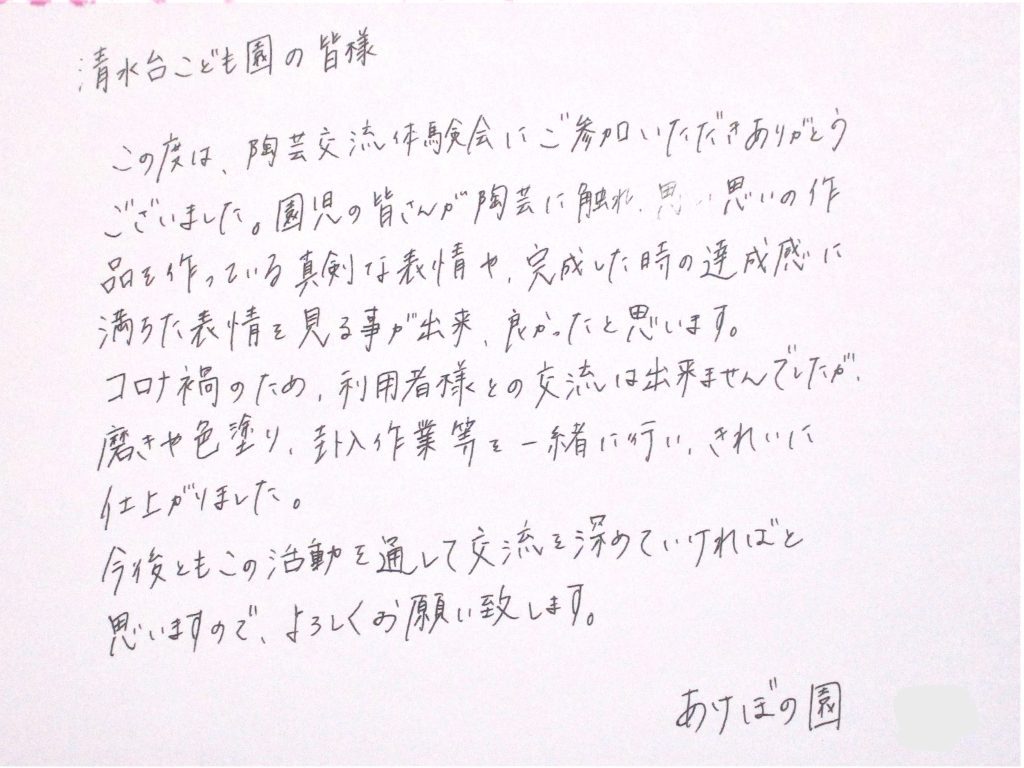 清水台こども園の皆様
この度は、陶芸交流体験会にご参加いただきありがとう
ございました。園児の皆さんが陶芸に触れ、思い思いの作
品を作っている真剣な表情や、完成した時の達成感に
満ちた表情を見る事が出来、良かったと思います。
コロナ禍のため、利用者様との交流は出来ませんでしたが、
磨きや色塗り、封入作業等を一緒に行い、きれいに
仕上がりました。
今後ともこの活動を通して交流を深めていければと
思いますので、よろしくお願い致します。
あけぼの園